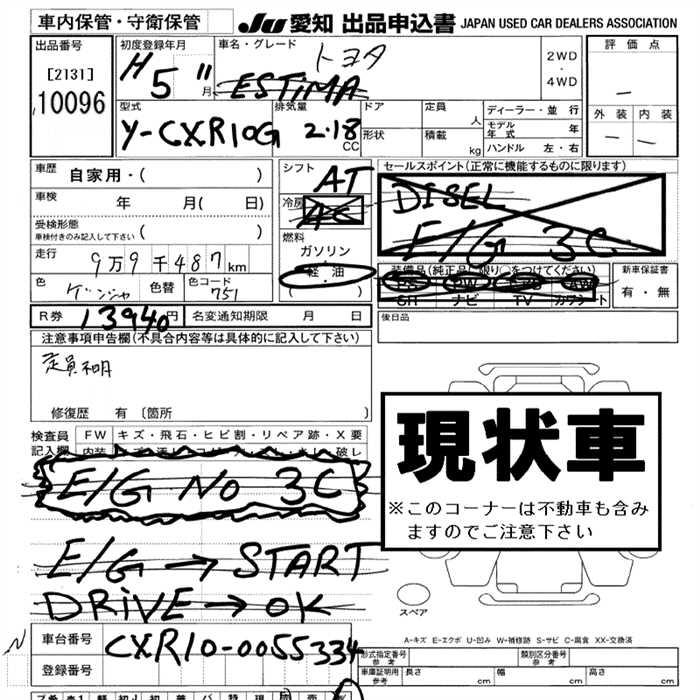 車内保管・守衛保管 JU 愛知 出品申込書 JAPAN USED CAR DEALERS ASSOCIATION
出品番号 初度登録年月 車名・グレード 評価点
[2131] H5 11月 トヨタ 2WD・4WD
10096 ESTIMA －
型式 排気量 ドア 定員 人 ディーラー・並行 外装 内装
Y-CXR10G 2.18 CC 形状 積載 kg モデル年式 年 － －
ハンドル 左・右
車歴 自家用・( ) シフト AT セールスポイント(正常に機能するものに限ります)
車検 年 月( 日) 冷房 AC DISEL
受検形態 車検付きのみ記入して下さい ( ) 燃料 E/G 3C
走行 9万9千487km ガソリン
軽・油 装備品(純正品に限り○をつけてください) 新車保証書
色 色替 色コード 751 ( ) PS PW AW 有・無
SH ナビ TV カワシート
R券 13940円 名変通知期限 月 日 後日品
注意事項申告欄(不具合内容等は具体的に記入して下さい)
定員不明
修復歴 有 〔箇所 〕
現状車
※このコーナーは不動車も含み
ますのでご注意下さい
検査員記入欄 FW キズ・飛石・ヒビ割・リペア跡・X要
内装 破レ
E/G No 3C
E/G → START
DRiVE → OK
スペア
A-キズ E-エクボ U-凹み W-補修跡 S-サビ C-腐食 XX-交換済
車台番号 CXR10-0055334 形式指定番号 参考 類別区分番号 参考
登録番号 車庫証明用 参考 長さ cm 幅 cm 高さ cm